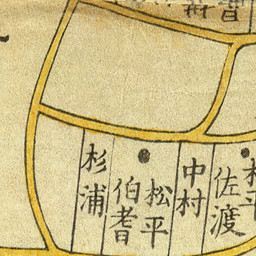 松平
佐渡
中村
松平
伯耆
杉浦